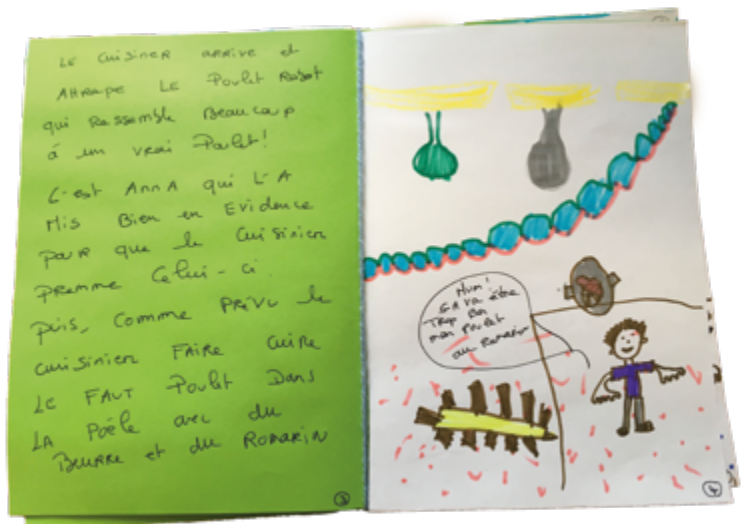 LE CUISINER ARRIVE et
AHRAPE LE Poulet Robot
qui Ressemble Beaucoup
à un vrai Poulet!
C'est AnnA qui L'A
Mis Bien en Evidence
pour que le Cuisinier
premme Celui-ci.
puis, comme PRÉVU le
cuisinier FAIRE cuire
LE FAUT Poulet Dans
LA Poêle avec du
BeuRRe et du ROMARIN
3
Hum!
SA VA être
TROP Bon
mon Poulet
au Romarin
4